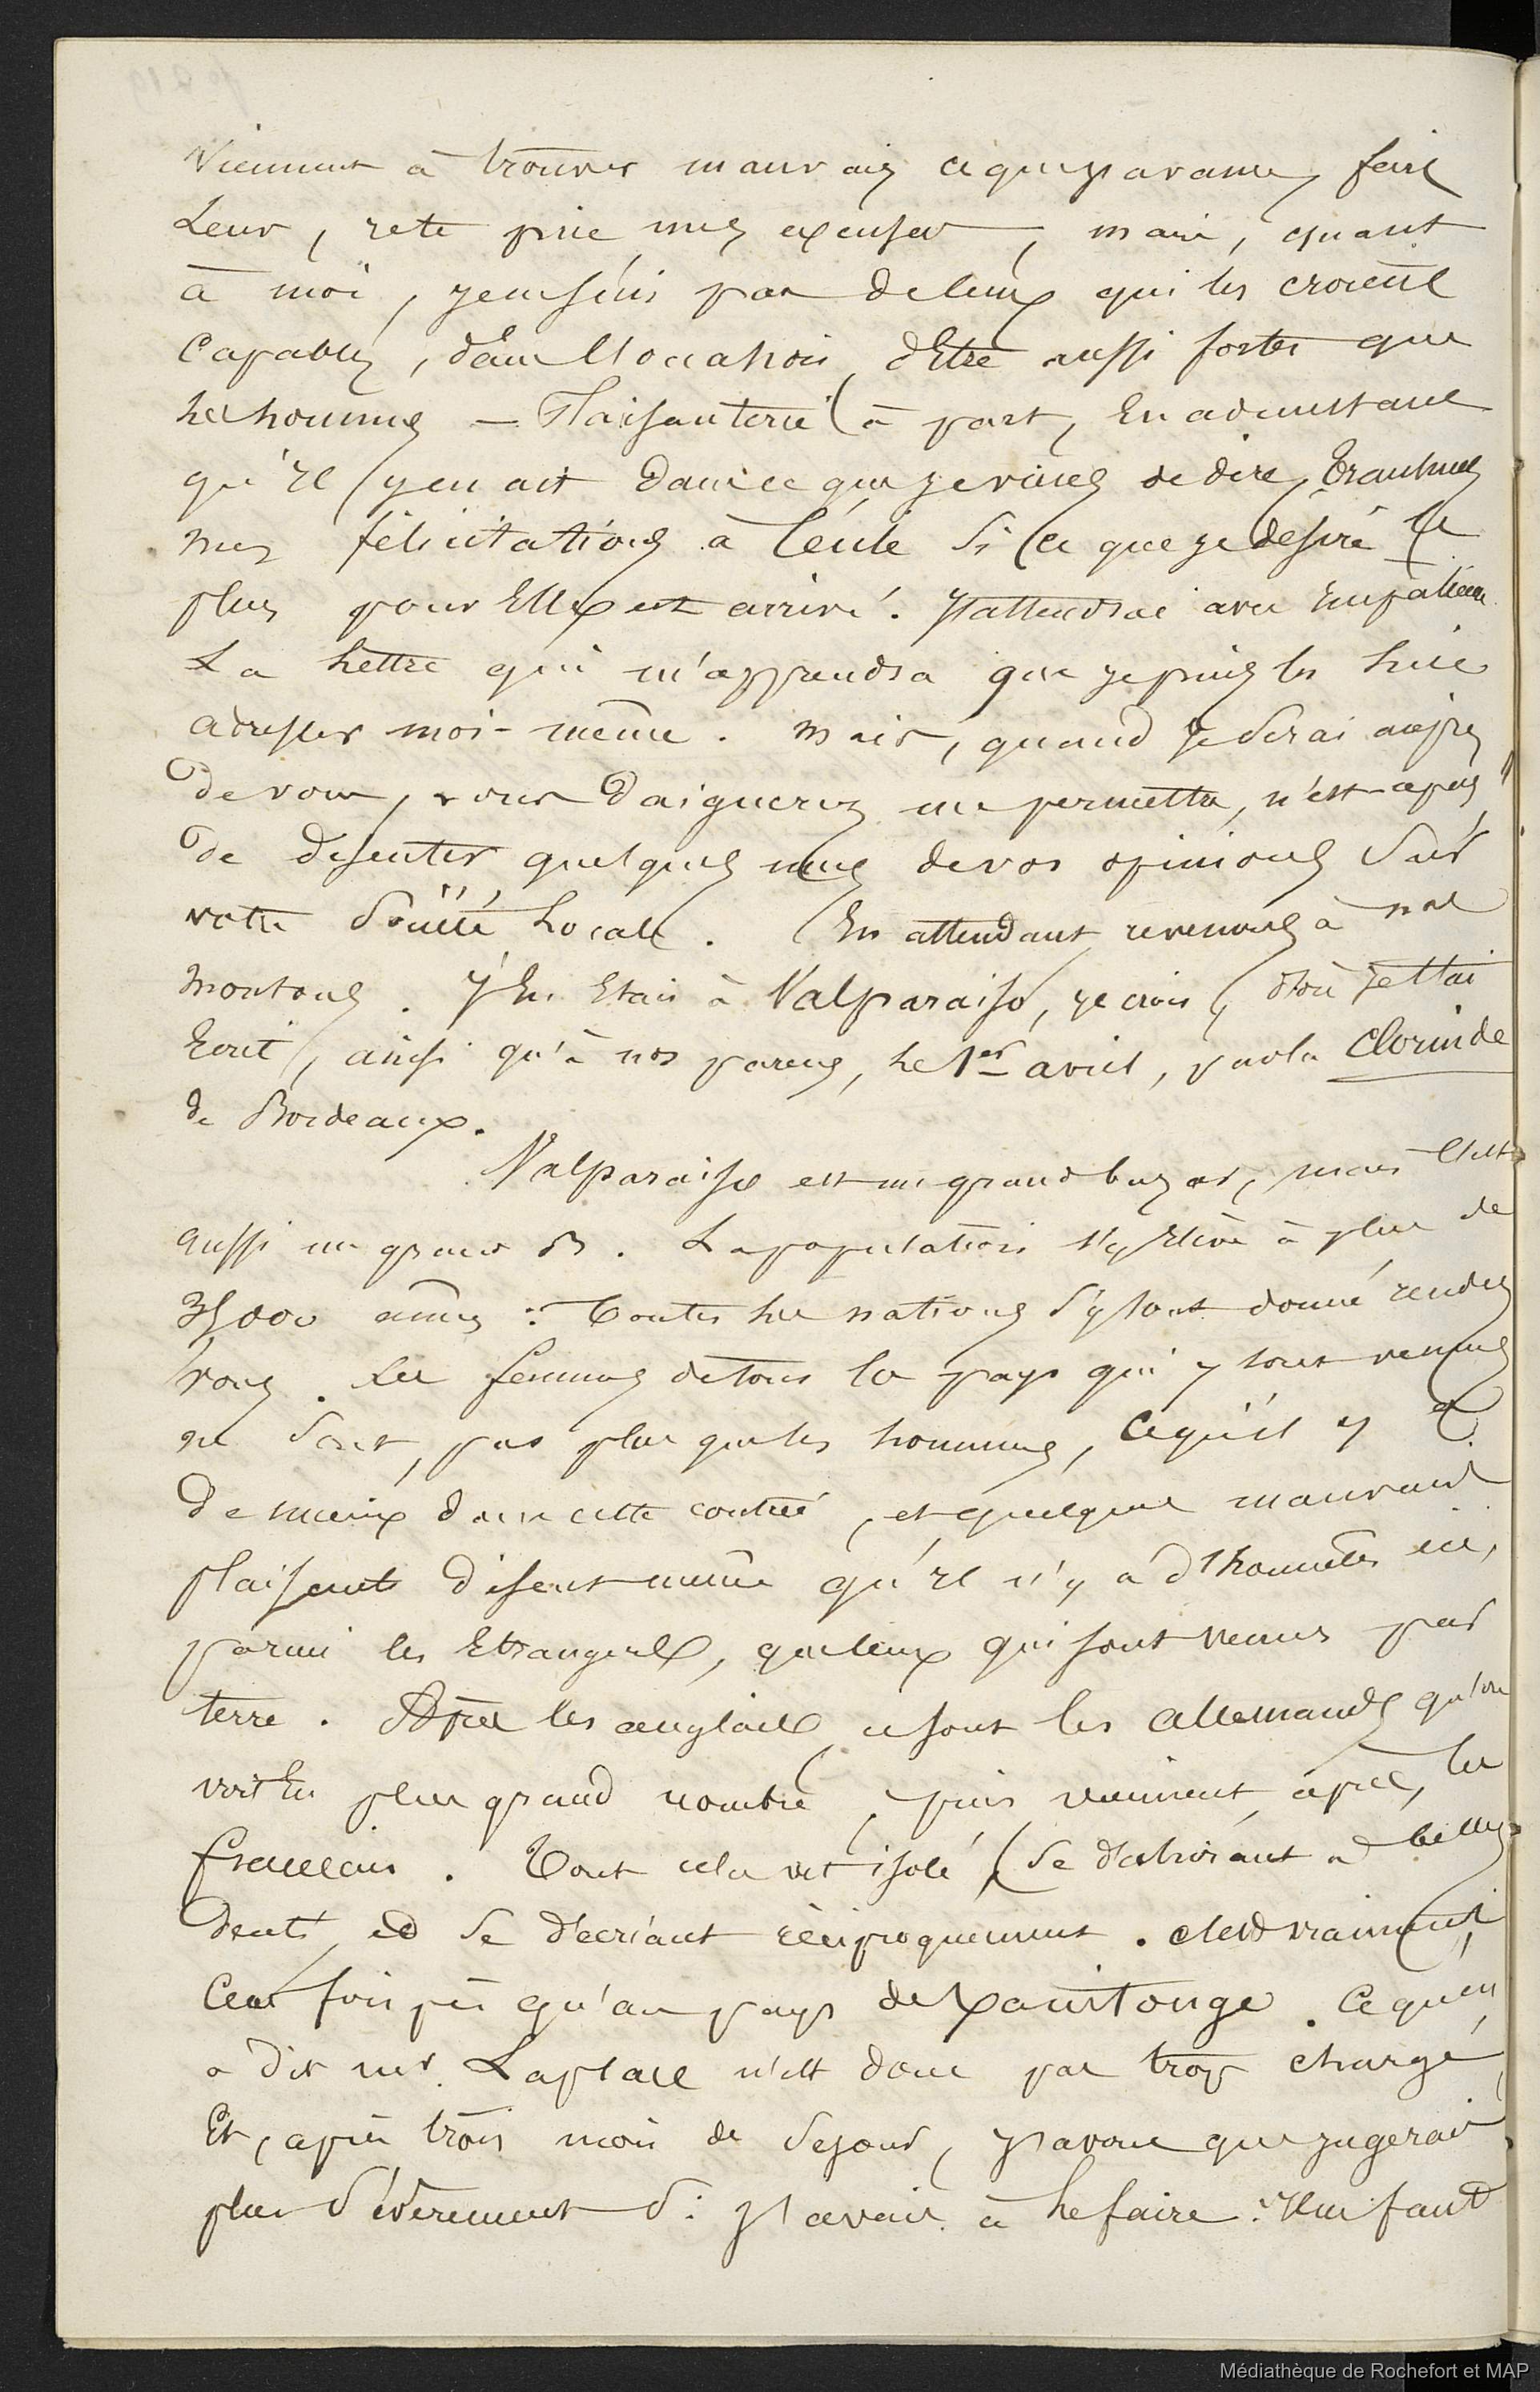 viennent à trouver mauvais ce que j'avance, fais
leur, je te prie mes excuses, mais, quant
à moi, je ne suis pas de ceux qui les croient
capables, dans l'occasion, d'être aussi fortes que
les hommes — Plaisanterie à part, En admettant
qu'il y en ait dans ce que je viens de dire, transmes
mes félicitations à Cécile si ce que je desire le
plus pour Elle est arrivé. J'attendrai avec impatience
La lettre qui m'apprendra que je puis les lui
adresser moi-même. mais, quand je serai auprès
de vous, vous daignerez me permettre, n'est-ce pas,
de discuter quelques unes de vos opinions sur
votre société locale. En attendant revenons à nos
moutons. J'En Etais à Valparaiso, je crois, d'où je t'ai
Ecrit, ainsi qu'à nos parens, le 1er avril, par la Clorinde
de Bordeaux.
Valparaiso est un grand bazar, mais c'est
aussi un grand B. La population s'y Elève à plus de
35000 âmes : toutes les nations s'y sont donné rendez
vous. Les femmes de tous les pays qui y sont venues
ne sont, pas plus que les hommes, ce qu'il y a
de mieux dans cette contrée, et quelques mauvais
plaisants disent même qu'il n'y a d'honnêtes ici,
parmi les Etrangers, que ceux qui sont venus par
terre. Après les anglais, ce sont les allemands qu'on
voit En plus grand nombre, puis viennent après, les
français. Tout cela vit isolé, se déchirant à belles
dents et se décriant réciproquement. c'est vraiment
Cent fois pis qu'au pays de Xaintonge. Ce qu'en
a dit mr. Laplace n'est donc pas trop chargé,
Et, après trois mois de sejour, j'avoue que jugerais
plus sévèrement si j'avais à le faire : Il ne faut